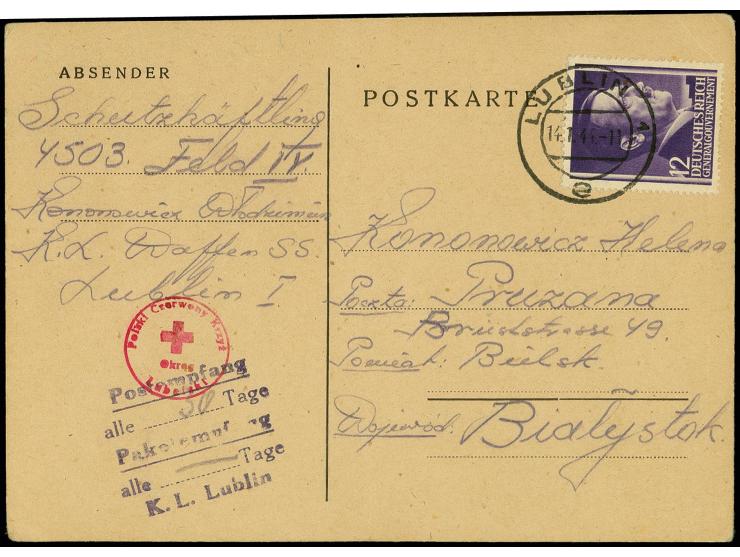 ABSENDER
Schutzhäftling
4503. Feld IV
Kononowicz Włodzimierz
K.L. Waffen SS.
Lublin I
Polski Czerwony Krzyż
Okręg
Lubelski
Postempfang
alle 30 Tage
Paketempfang
alle Tage
K. L. Lublin
POSTKARTE
LUBLIN 1
14.1.44.-11
e
12
DEUTSCHES REICH
GENERALGOUVERNEMENT
Kononowicz Helena
Poczta: Pruzana
Bruststrasse 49.
Powiat: Bielsk.
Wojewód. Białystok.